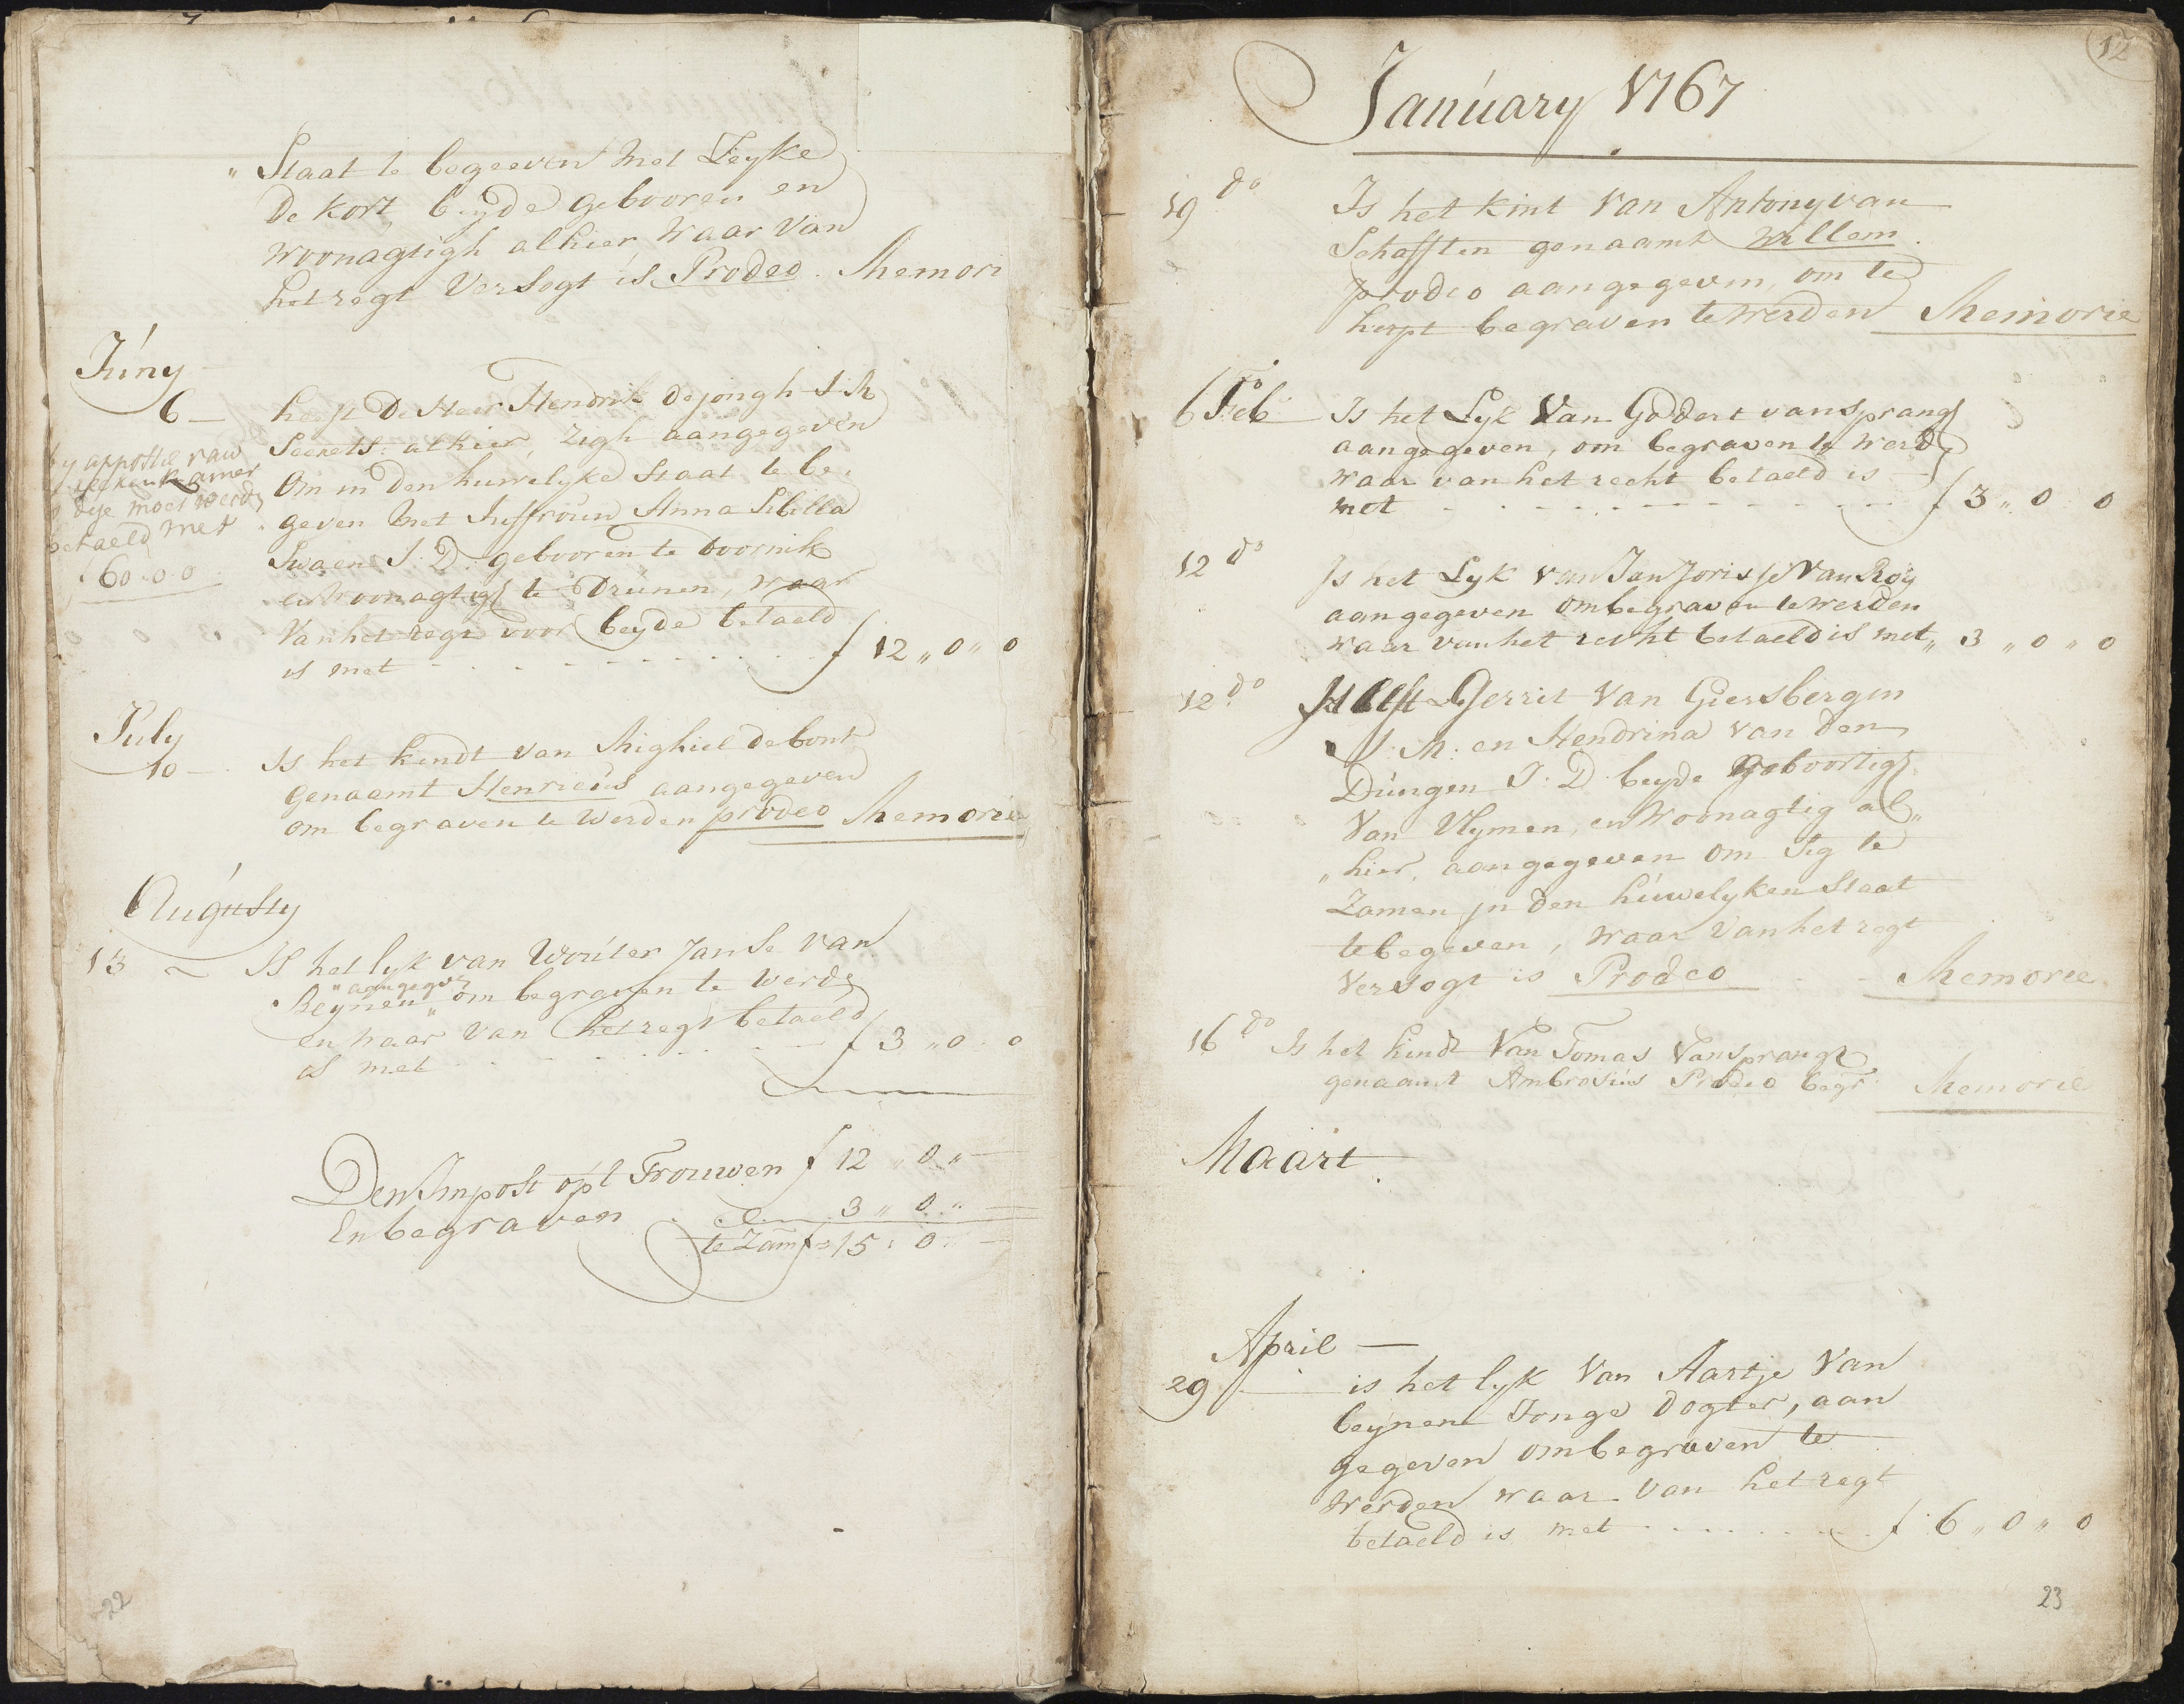 „ Staat te begeeven met Leyke
De Kort beyde gebooren en
woonagtigh alhier waar van
het regt Versogt is Prodeo. Memori
Júny
6 — heeft De Heer Hendrik de jongh J:M
Secrets: alhier, zigh aangegeven
Om in den huwelyke Staat te be„
geven met Juffroúw Anna Sibilla
Swaen J:D. gebooren te doornik
en woonagtigh te Drúnen, waar
Van het regt voor beyde betaeld
is met - - - - - - - - f 12 „ 0 „ 0
by appostil van
reekenkamer
dese moet werd
betaeld met
f 60-0-0
Júly
10 — Is het kindt van Mighiel de bont
Genaamt Henricús aangegeven
om begraven te Werden prodeo Memorie
Aúgústy
13 ~ IS het lyk van Woúter Janse van
„aangegeven
Beynen „ om begraven te werde
en waar van het regt betaeld
is met - - - - - - - f 3 „ 0 - 0
Den Impost op't Trouwen f 12 „ 0 „ —
En begraven - - 3 „ 0 „ —
te Zam f 15 : 0 : —
22
12
Janúary 1767
19 do Is het kint van Antony van
Schafften genaamt Willem.
prodeo aangegeven, om te
herpt begraven te werden Memorie
6 Feb Is het Lyk Van Goddert van sprang
aangegeven, om begraven te werd
waar van het recht betaeld is
met - - - - - - - - f 3 „ 0 0
12 do Is het Lyk van Jan Jorisse Van Roy
aangegeven om begraven te werden
waar van het recht betaeld is met „ 3 „ 0 „ 0
12 do Gerrit Van Giersbergen
J:M: en Hendrina van den
Dúngen J:D. beyde geboortig
Van Vlymen, en Woonagtig al„
„hier, aangegeven om Sig te
Zamen in den húwelyken Staat
te begeven, waar Van het regt
Versogt is Prodeo - - Memorie.
16 do Is het kindt Van Tomas Van sprangh
genaamt Ambrosiús Prodeo begr Memorie
Maart
April —
29 — is het lyk Van Aartje Van
beynen Jonge dogter, aan
gegeven om begraven te
Werden waar van het regt
betaeld is met - - - - - - f 6 „ 0 „ 0
23